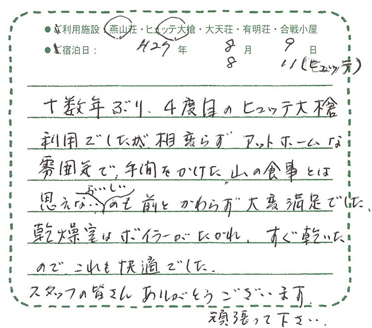 ●ご利用施設：燕山荘・ヒュッテ大槍・大天荘・有明荘・合戦小屋
●ご宿泊日： H29 年 8 月 9 日
8 11(ヒュッテ)
十数年ぶり、4度目のヒュッテ大槍
利用でしたが相変らずアットホームな
雰囲気で、手間をかけた山の食事とは
思えない おいしい のも前とかわらず大変満足でした。
乾燥室はボイラーがたかれ、すぐ乾いた
のでこれも快適でした。
スタッフの皆さんありがとうございます。
頑張って下さい。